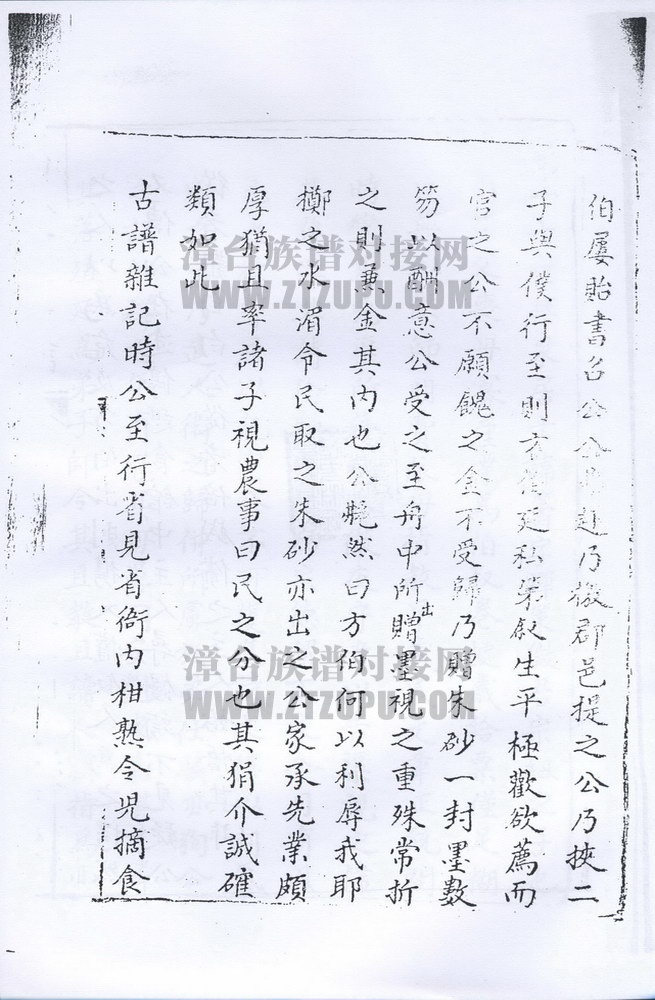 伯屢貽書召公公赴乃檄郡邑提之公乃挾二
子與僕行至則方伯延私第敘生平極歡欲薦而
官之公不願餽之金不受歸乃贈朱砂一封墨數
笏以酬意公受之至舟中出所贈墨視之重殊常折
之則裹金其内也公艴然曰方伯何以利辱我耶
擲之水湄令民取之朱砂亦出之公家承先業頗
厚猶且率諸子視農事曰民之分也其狷介誠確
類如此
古譜雜記時公至行省見省衙内柑熟令児摘食
漳台族谱对接网
WWW.ZTZUPU.COM
漳台族谱对接网
WWW.ZTZUPU.COM